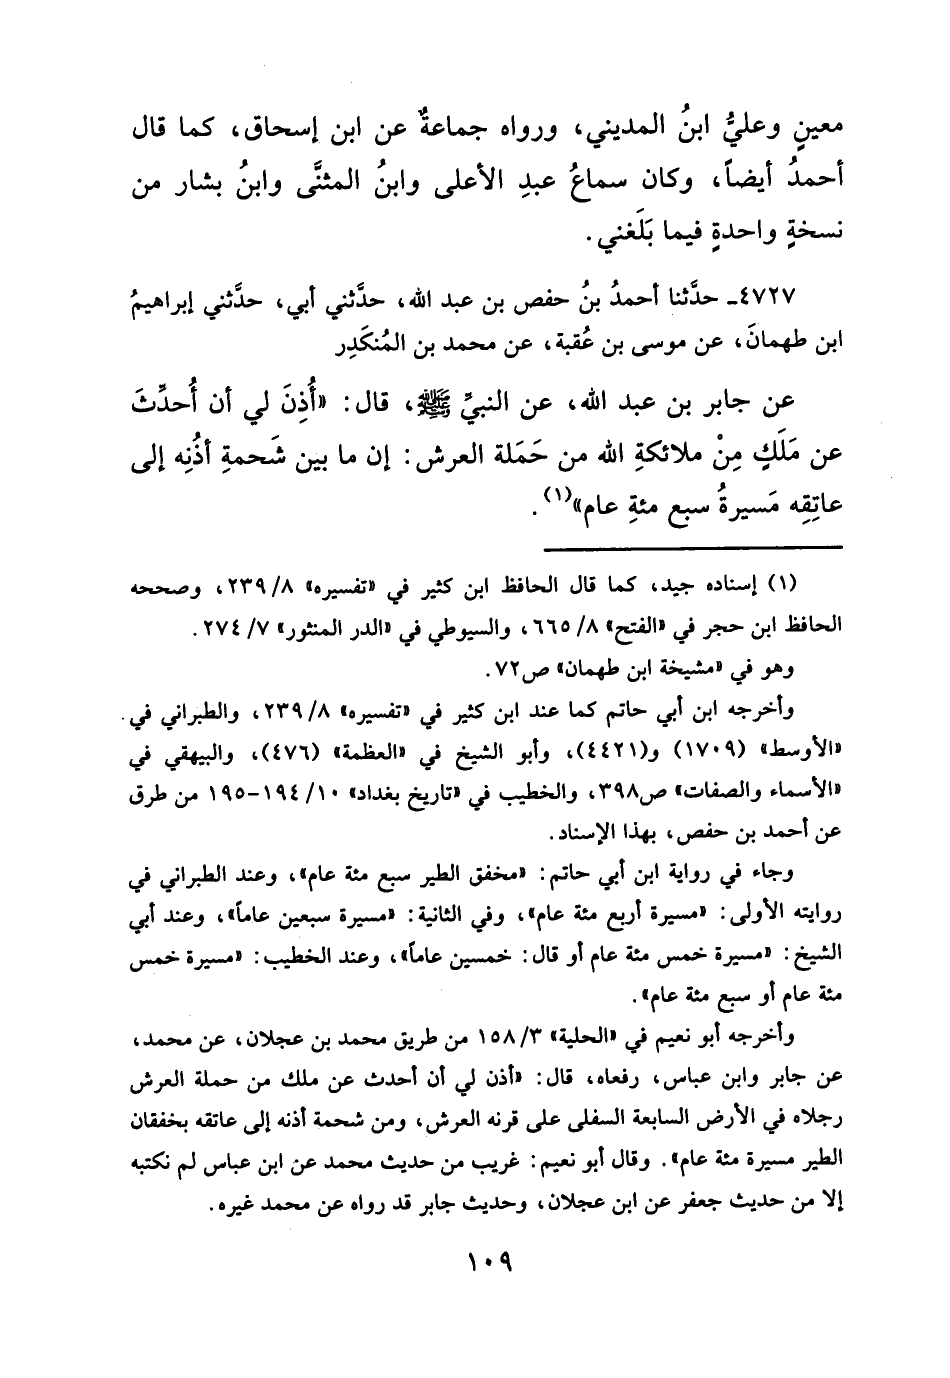 معينٍ وعليُّ ابنُ المديني، ورواه جماعةٌ عن ابن إسحاق، كما قال
أحمدُ أيضاً، وكان سماعُ عبدِ الأعلى وابنُ المثنَّى وابنُ بشار من
نسخةٍ واحدةٍ فيما بَلَغني.
٤٧٢٧ـ حدَّثنا أحمدُ بنُ حفص بن عبد الله، حدَّثني أبي، حدَّثني إبراهيمُ
ابن طهمانَ، عن موسى بن عُقبة، عن محمد بن المُنكَدِر
عن جابر بن عبد الله، عن النبيِّ ﷺ، قال: «أُذِنَ لي أن أُحدِّثَ
عن مَلَكٍ مِنْ ملائكةِ الله من حَمَلة العرش: إن ما بين شَحمةِ أذُنِه إلى
عاتِقِه مَسيرةُ سبع مئةِ عام»(١).
(١) إسناده جيد، كما قال الحافظ ابن كثير في «تفسيره» ٨/ ٢٣٩، وصححه
الحافظ ابن حجر في «الفتح» ٨/ ٦٦٥، والسيوطي في «الدر المنثور» ٧/ ٢٧٤.
وهو في «مشيخة ابن طهمان» ص٧٢.
وأخرجه ابن أبي حاتم كما عند ابن كثير في «تفسيره» ٨/ ٢٣٩، والطبراني في
«الأوسط» (١٧٠٩) و(٤٤٢١)، وأبو الشيخ في «العظمة» (٤٧٦)، والبيهقي في
«الأسماء والصفات» ص٣٩٨، والخطيب في «تاريخ بغداد» ١٠/ ١٩٤-١٩٥ من طرق
عن أحمد بن حفص، بهذا الإسناد.
وجاء في رواية ابن أبي حاتم: «مخفق الطير سبع مئة عام»، وعند الطبراني في
روايته الأولى: «مسيرة أربع مئة عام»، وفي الثانية: «مسيرة سبعين عاماً»، وعند أبي
الشيخ: «مسيرة خمس مئة عام أو قال: خمسين عاماً»، وعند الخطيب: «مسيرة خمس
مئة عام أو سبع مئة عام».
وأخرجه أبو نعيم في «الحلية» ٣/ ١٥٨ من طريق محمد بن عجلان، عن محمد،
عن جابر وابن عباس، رفعاه، قال: «أذن لي أن أحدث عن ملك من حملة العرش
رجلاه في الأرض السابعة السفلى على قرنه العرش، ومن شحمة أذنه إلى عاتقه بخفقان
الطير مسيرة مئة عام». وقال أبو نعيم: غريب من حديث محمد عن ابن عباس لم نكتبه
إلا من حديث جعفر عن ابن عجلان، وحديث جابر قد رواه عن محمد غيره.
١٠٩